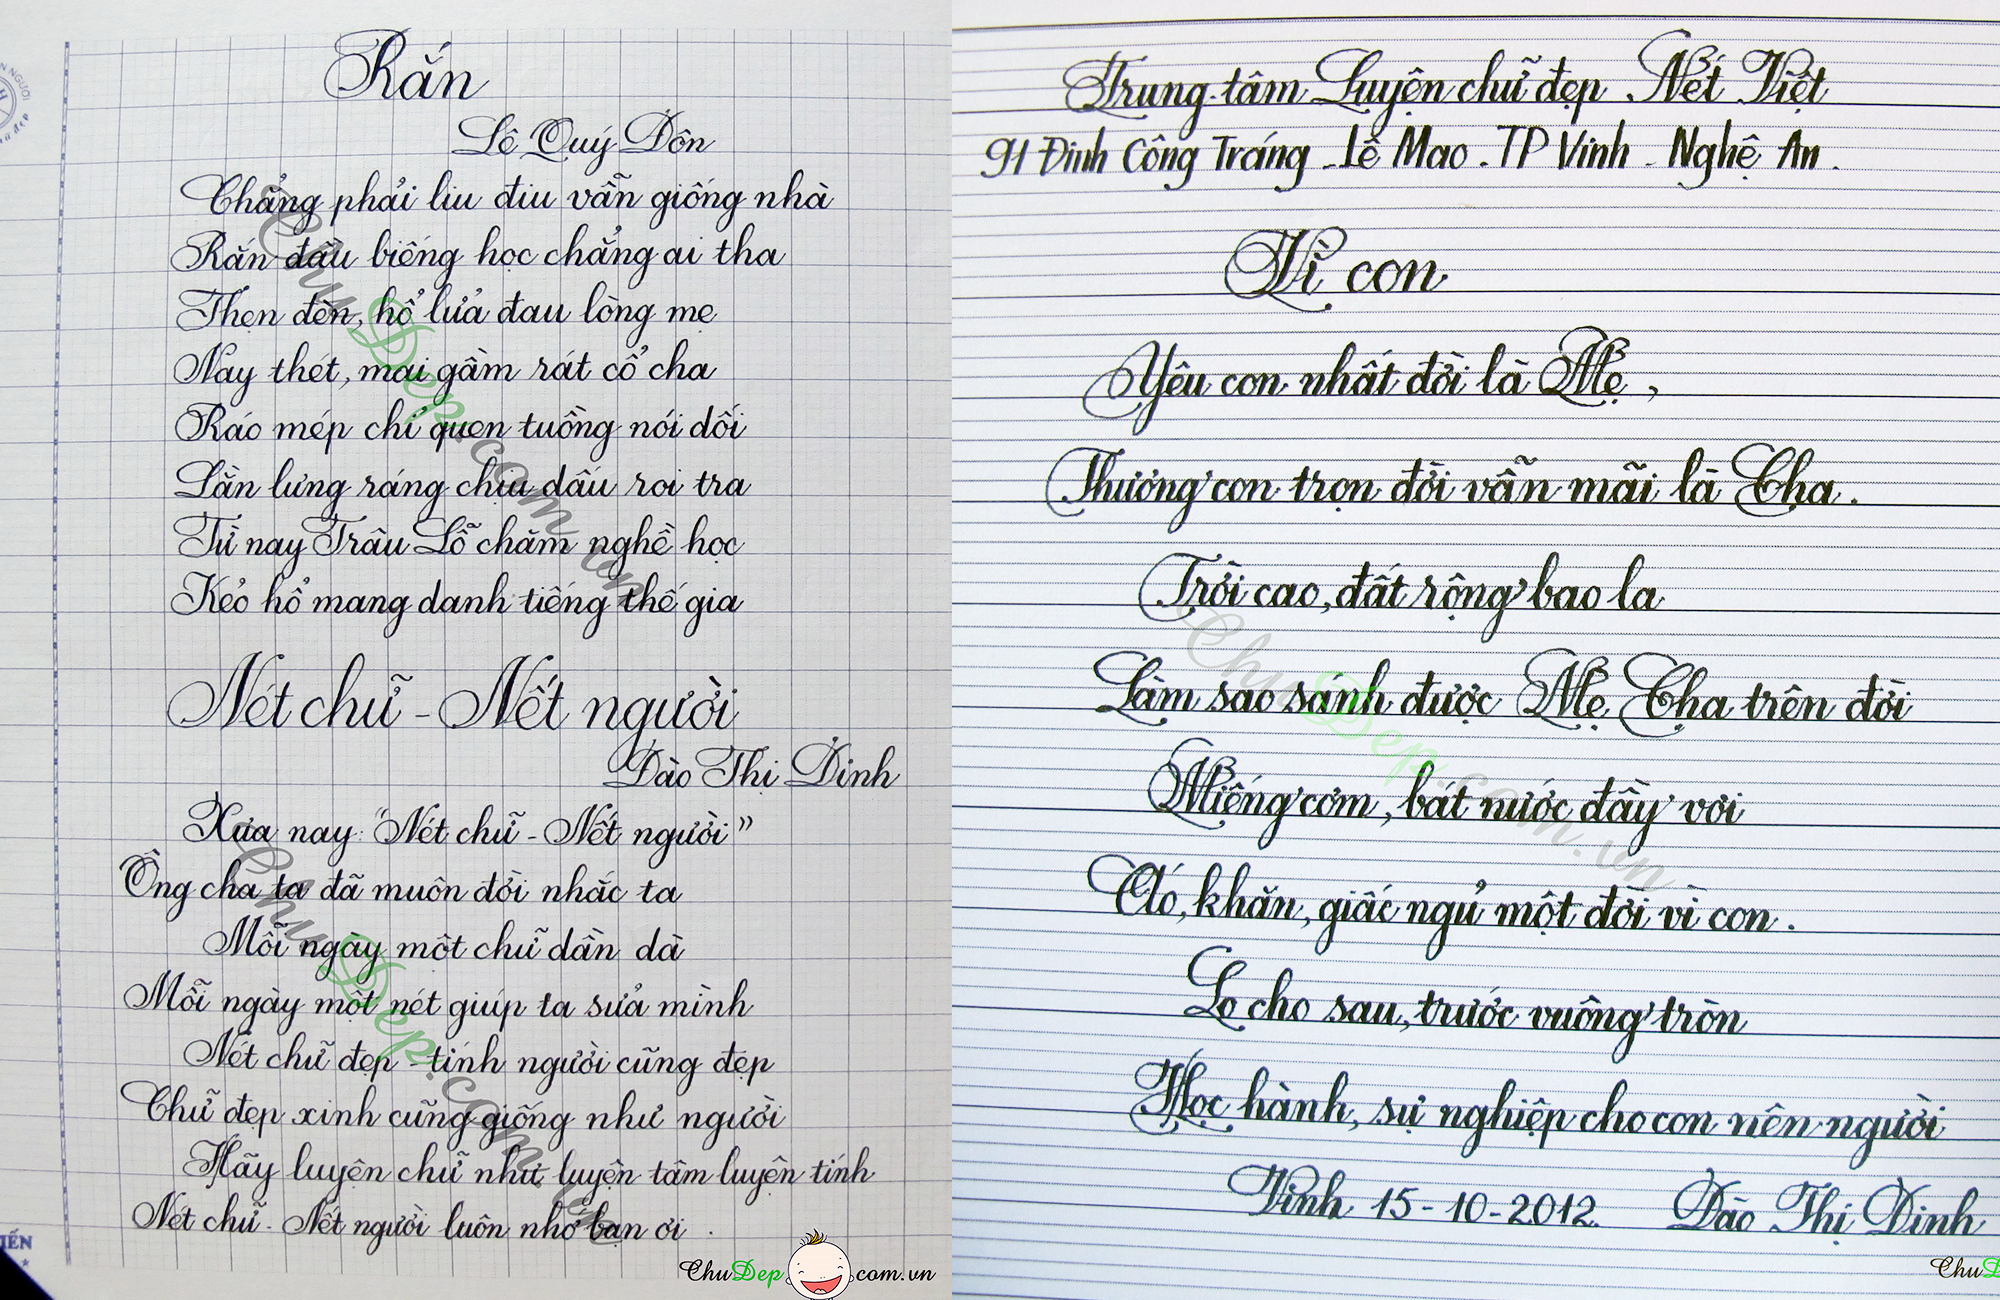 Rắn
Lê Quý Đôn
Chẳng phải liu điu vẫn giống nhà
Rắn đầu biếng học chẳng ai tha
Thẹn đèn, hổ lửa đau lòng mẹ
Nay thét, mai gầm rát cổ cha
Ráo mép chỉ quen tuồng nói dối
Lằn lưng ráng chịu dấu roi tra
Từ nay Trâu Lỗ chăm nghề học
Kẻo hổ mang danh tiếng thế gia
Nét chữ - Nết người
Đào Thị Dinh
Xưa nay: "Nét chữ - Nết người"
Ông cha ta đã muôn đời nhắc ta
Mỗi ngày một chữ dần dà
Mỗi ngày một nét giúp ta sửa mình
Nét chữ đẹp - tính người cũng đẹp
Chữ đẹp xinh cũng giống như người
Hãy luyện chữ như luyện tâm luyện tính
Nét chữ - Nết người luôn nhớ bạn ơi.
ChuDep.com.vn
Trung tâm Luyện chữ đẹp Nét Việt
91 Đinh Công Tráng - Lê Mao - TP Vinh - Nghệ An.
Vì con
Yêu con nhất đời là Mẹ,
Thương con trọn đời vẫn mãi là Cha.
Trời cao, đất rộng bao la
Làm sao sánh được Mẹ Cha trên đời
Miếng cơm, bát nước đầy vơi
Áo, khăn, giấc ngủ một đời vì con.
Lo cho sau, trước vuông tròn
Học hành, sự nghiệp cho con nên người
Vinh 15-10-2012. Đào Thị Dinh